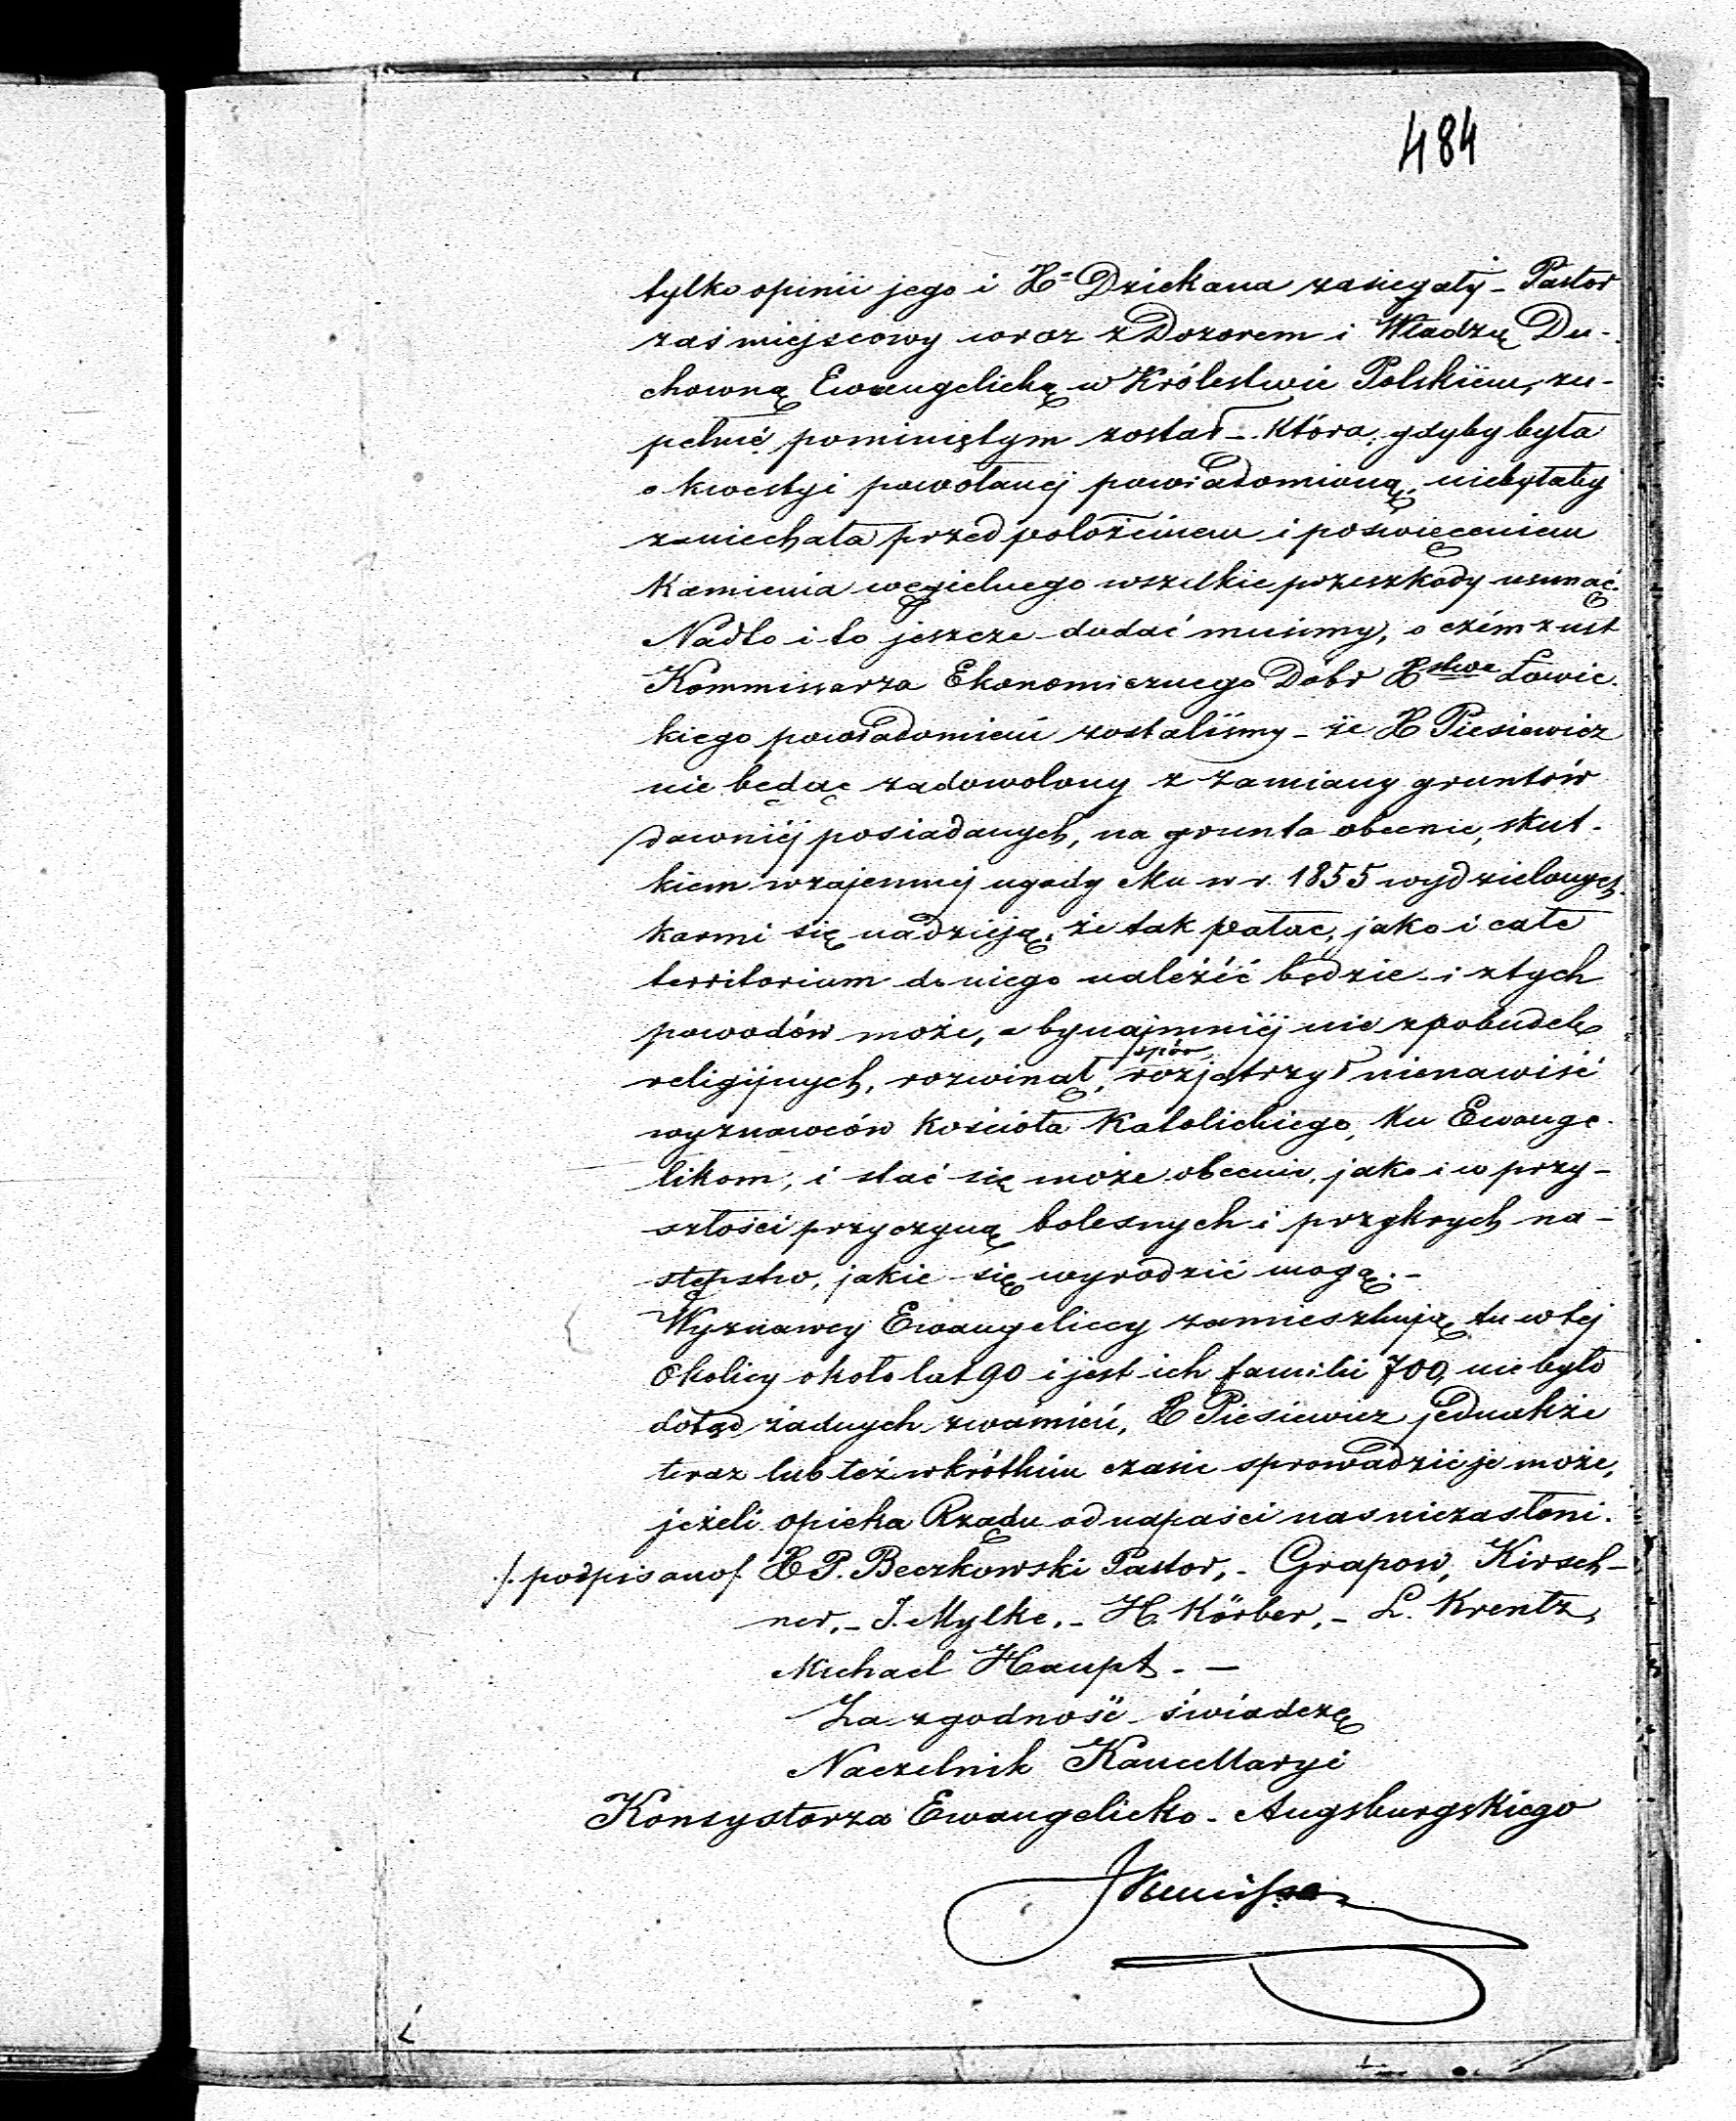 484
tylko opinii jego i X= Dziekana zasięgały – Pastor
zaś miejscowy wraz z Dozorem i Władzą Du-
chowną Ewangelicką w Królestwie Polskiém, zu-
pełnie pominiętym został – Która, gdyby była
o kwestyi powołanej powiadomioną, niebyłaby
zaniechała przed położeniem i poświęceniem
Kamienia węgielnego wszelkie przeszkody usunąć.
Nadto i to jeszcze dodać musimy, o czém z ust
Kommissarza Ekonomicznego Dóbr Xstwa Łowic-
kiego powiadomieni zostaliśmy – że X Piesiewicz
nie będąc zadowolony z zamiany gruntów
dawniéj posiadanych, na grunta obecnie, skut-
kiem wzajemnej ugody Mu w r. 1855 wydzielonych
karmi się nadzieją, że tak pałac, jako i całe
territorium do niego należéć będzie – i z tych
powodów może, a bynajmniéj nie z pobudek
religijnych, rozwinął spór, rozjątrzył nienawiść
wyznawców Kościoła Katolickiego, Ku Ewange-
likom, i stać się może obecnie, jako i w przy-
szłości przyczyną bolesnych i przykrych na-
stępstw, jakie się wyrodzić mogą. –
Wyznawcy Ewangeliccy zamieszkują tu w tej
Okolicy około lat 90 i jest ich familii 700, nie było
dotąd żadnych zwaśnień, X Piesiewicz jednakże
teraz lub też w krótkim czasie sprowadzić je może,
jeżeli opieka Rządu od napaści nas niezasłoni.
/. podpisano /. X P. Beczkowski Pastor, – Grapow, Kirsch-
ner, – J. Mylke, – H. Körber, – L. Krentz,
Michael Haupt. –
Za zgodność świadczę
Naczelnik Kancellaryi
Konsystorza Ewangelicko – Augsburgskiego